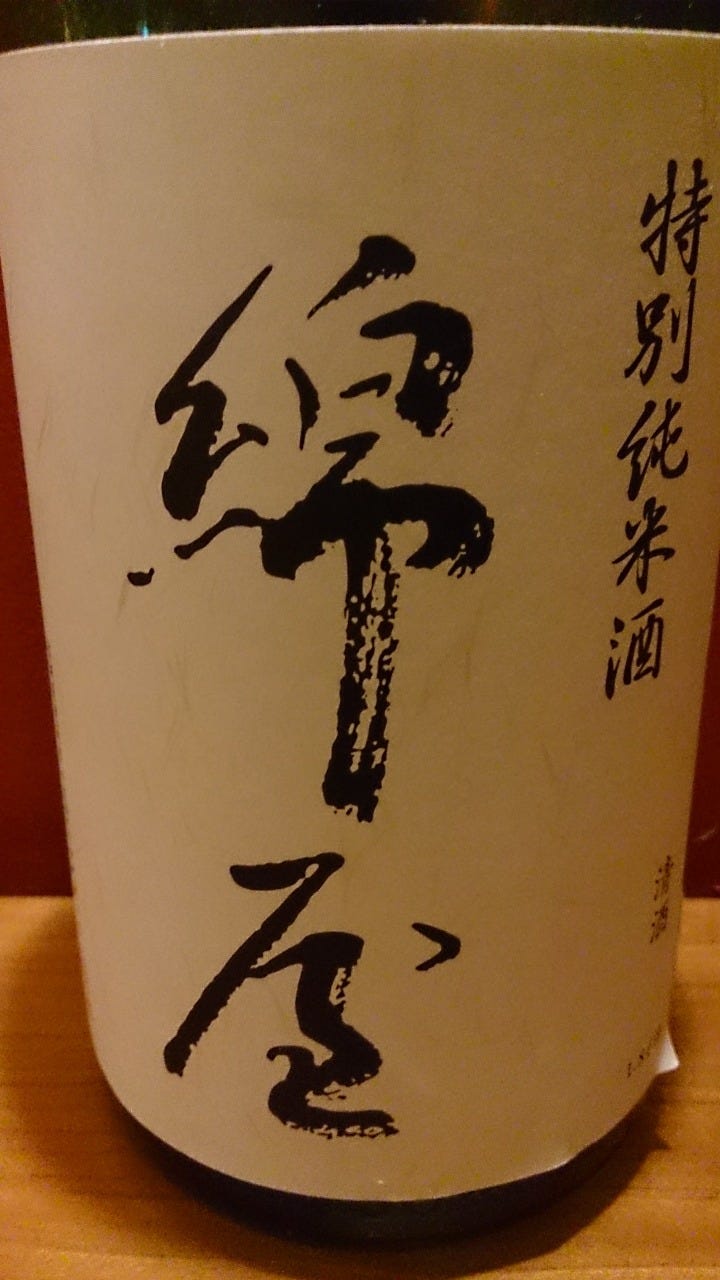 特別純米酒
綿屋
清酒